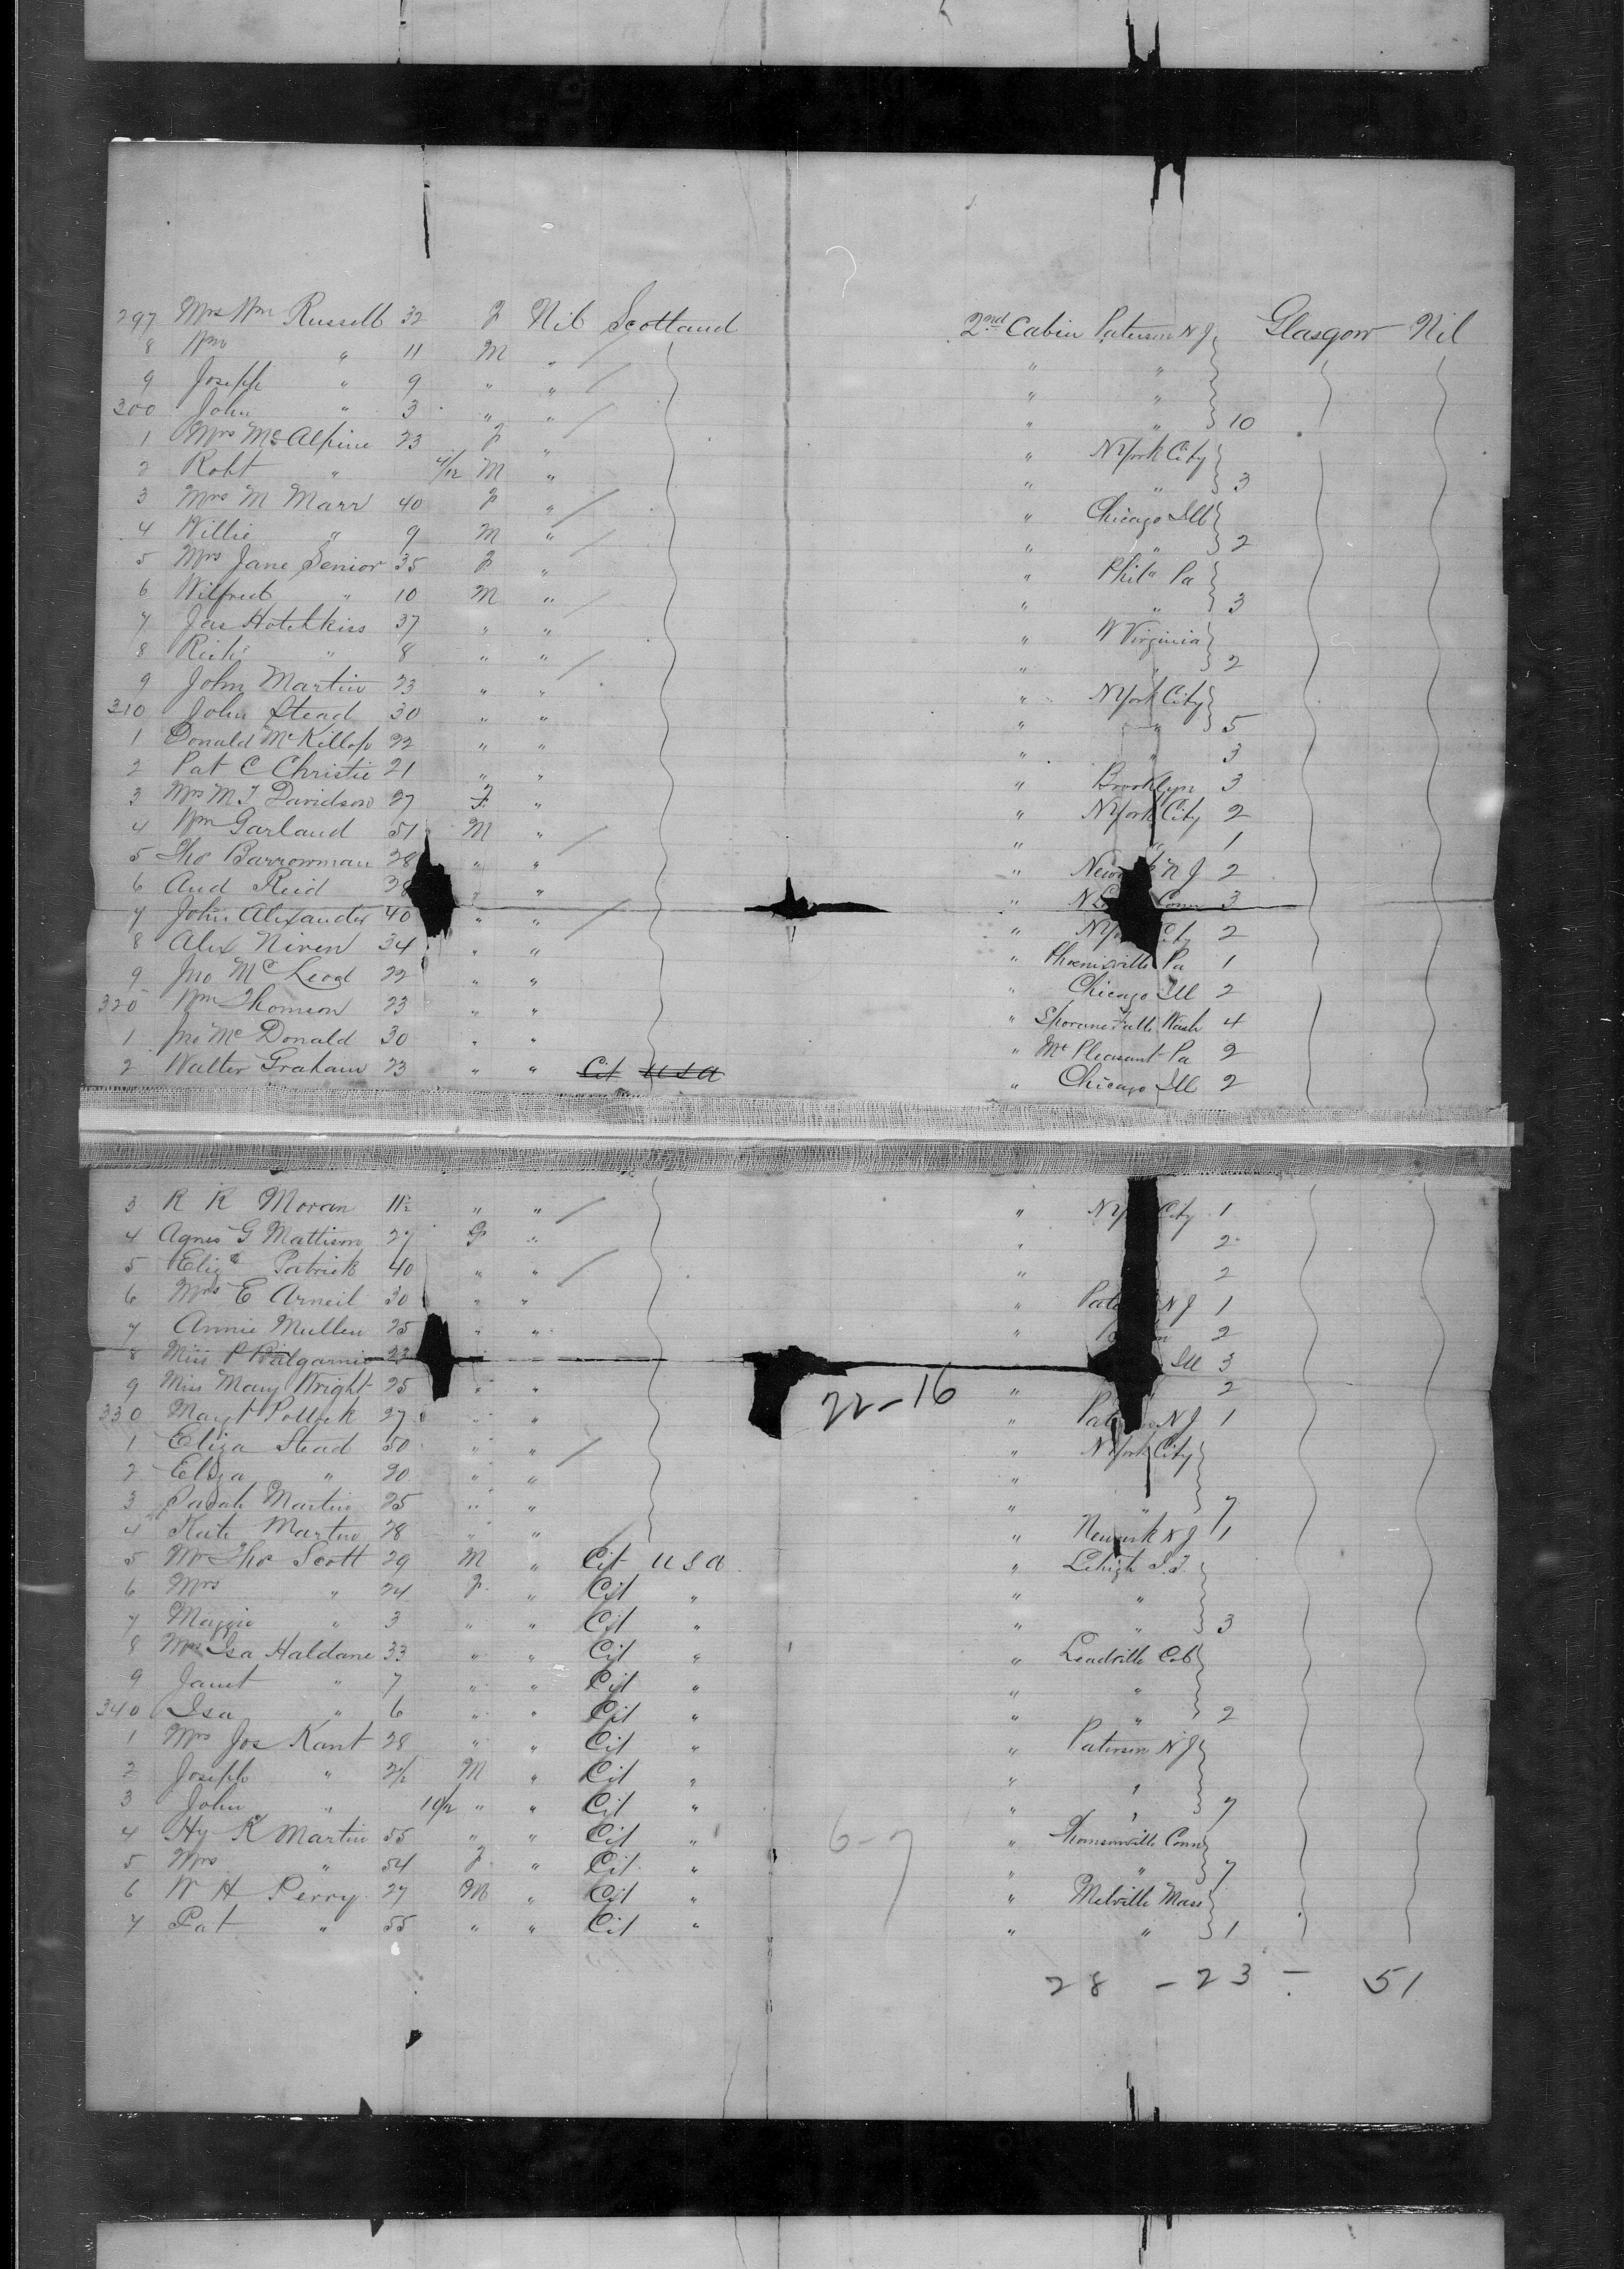 297 Mrs Wm Russell 32 F Nil Scotland 2nd Cabin Paterson N J Glasgow Nil
8 Wm " 11 M " " "
9 Joseph " 9 " " " "
300 John " 3 " " " " 10
1 Mrs McAlpine 23 F " " N York City
2 Robt " 4/12 M " " " 3
3 Mrs M Marr 40 F " " Chicago Ill
4 Willie " 9 M " " " 2
5 Mrs Jane Senior 35 F " " Phila Pa
6 Wilfred " 10 M " " " 3
7 Jas Hotchkiss 37 " " " W Virginia
8 Richd " 8 " " " " 2
9 John Martin 23 " " " N York City
310 John Stead 30 " " " " 5
1 Donald McKillop 22 " " " " 3
2 Pat C Christie 21 " " " Brooklyn 3
3 Mrs M J Davidson 27 F " " N York City 2
4 Wm Garland 51 M " " " 1
5 Tho Barrowman 28 " " " Newark N J 2
6 And Reid 38 " " " N Conn 3
7 John Alexander 40 " " " N York City 2
8 Alex Niven 34 " " " Phoenixville Pa 1
9 Jno McLeod 22 " " " Chicago Ill 2
320 Wm Thomson 23 " " " Spokane Falls Wash 4
1 Jno McDonald 30 " " " Mt Pleasant Pa 2
2 Walter Graham 23 " " Cit U S A " Chicago Ill 2
3 R K Moran 11 1/2 " " " N York City 1
4 Agnes G Mattison 27 F " " 2
5 Eliz Patrick 40 " " " 2
6 Mrs E Arneil 30 " " " Paterson N J 1
7 Annie Mullen 25 " " " 2
8 Miss P Balgarnie 23 " Ill 3
9 Miss Mary Wright 25 " " " 2
22-16
330 Magt Pollock 27 " " " Paterson N J 1
1 Eliza Stead 50 " " " N York City
2 Eliza " 20 " " "
3 Sarah Martin 25 " " " " 7
4 Kate Martin 28 " " " Newark N J 1
5 Mr Tho Scott 29 M " Cit U S A " Lehigh I.T.
6 Mrs " 24 F " Cit " " "
7 Maggie " 3 " " Cit " " " 3
8 Mrs Isa Haldane 33 " " Cit " " Leadville Col
9 Janet " 7 " " Cit " " "
340 Isa " 6 " " Cit " " " 2
1 Mrs Jos Kant 28 " " Cit " " Paterson N J
2 Joseph " 2 1/2 M " Cit " " "
3 John " 10/12 " " Cit " " " 7
4 Hy K Martin 55 " " Cit " 6-7 " Thomsonville Conn
5 Mrs " 54 F " Cit " " " 7
6 W H Perry 27 M " Cit " " Melville Mass
7 Pat " 55 " " Cit " " " 1
28 - 23 - 51